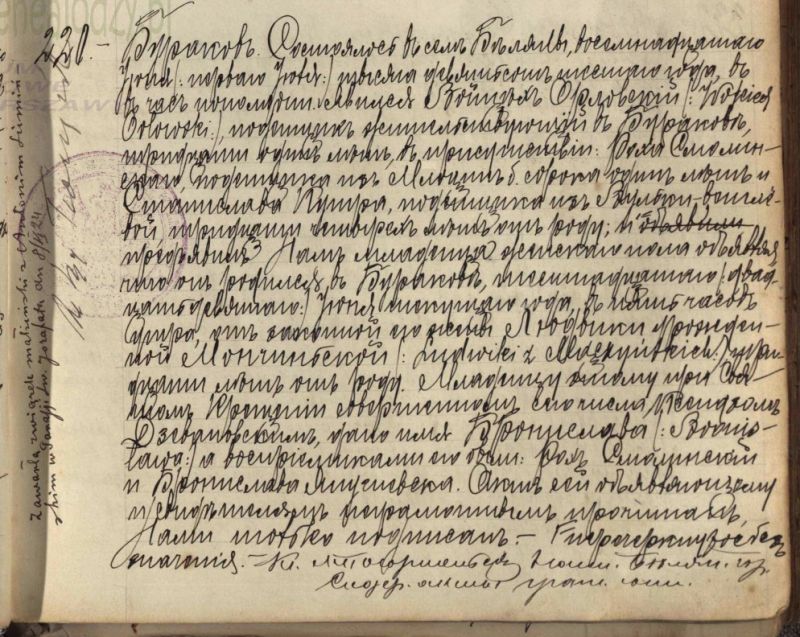 220.
Бураковъ. Состоялось въ селѣ Бѣляны, восемнадцатаго
Іюня /: перваго Іюля :/ тысяча девятьсотъ шестаго года, въ
въ часъ пополудни. Явился Войцѣхъ Орловскій /: Wojciech
Orłowski :/, поденщикъ жительствующій въ Бураковѣ,
тридцати одинъ лѣтъ, въ присутствіи: Роха Смолин-
скаго, поденщика изъ Млоцинъ сорока одинъ лѣтъ и
Станислава Кутра, поденщика изъ Вульки-
вой, тридцати четырехъ лѣтъ отъ роду; и объявили
предъявилъ Намъ младенца женскаго пола объявляя
что онъ родился въ Бураковѣ, шестнадцатаго /: двад-
цатьдевятаго :/ Іюня текущаго года, въ пять часовъ
утра, отъ законной его жены Людвики урожден-
ной Мончинской /: Ludwiki z Mączyńskich :/ три-
дцати лѣтъ отъ роду. Младенцу этому при Свя-
томъ Крещеніи совершенномъ сего числа Ксендзомъ
дано имя Бронислава /: Bronis-
ława :/ а воспріемниками его были: Рохъ Смолинскій
и Бронислава Актъ сей объявляющему
и свидѣтелямъ неграмотнымъ прочитанъ,
Нами только подписанъ. — Зачеркнутое безъ
значенія. — Кс.
Содер. акты гражд. сост.
Zawarła związek małżeński z Antonim
skim w Parafji św. Jozafata dn 8/ 24